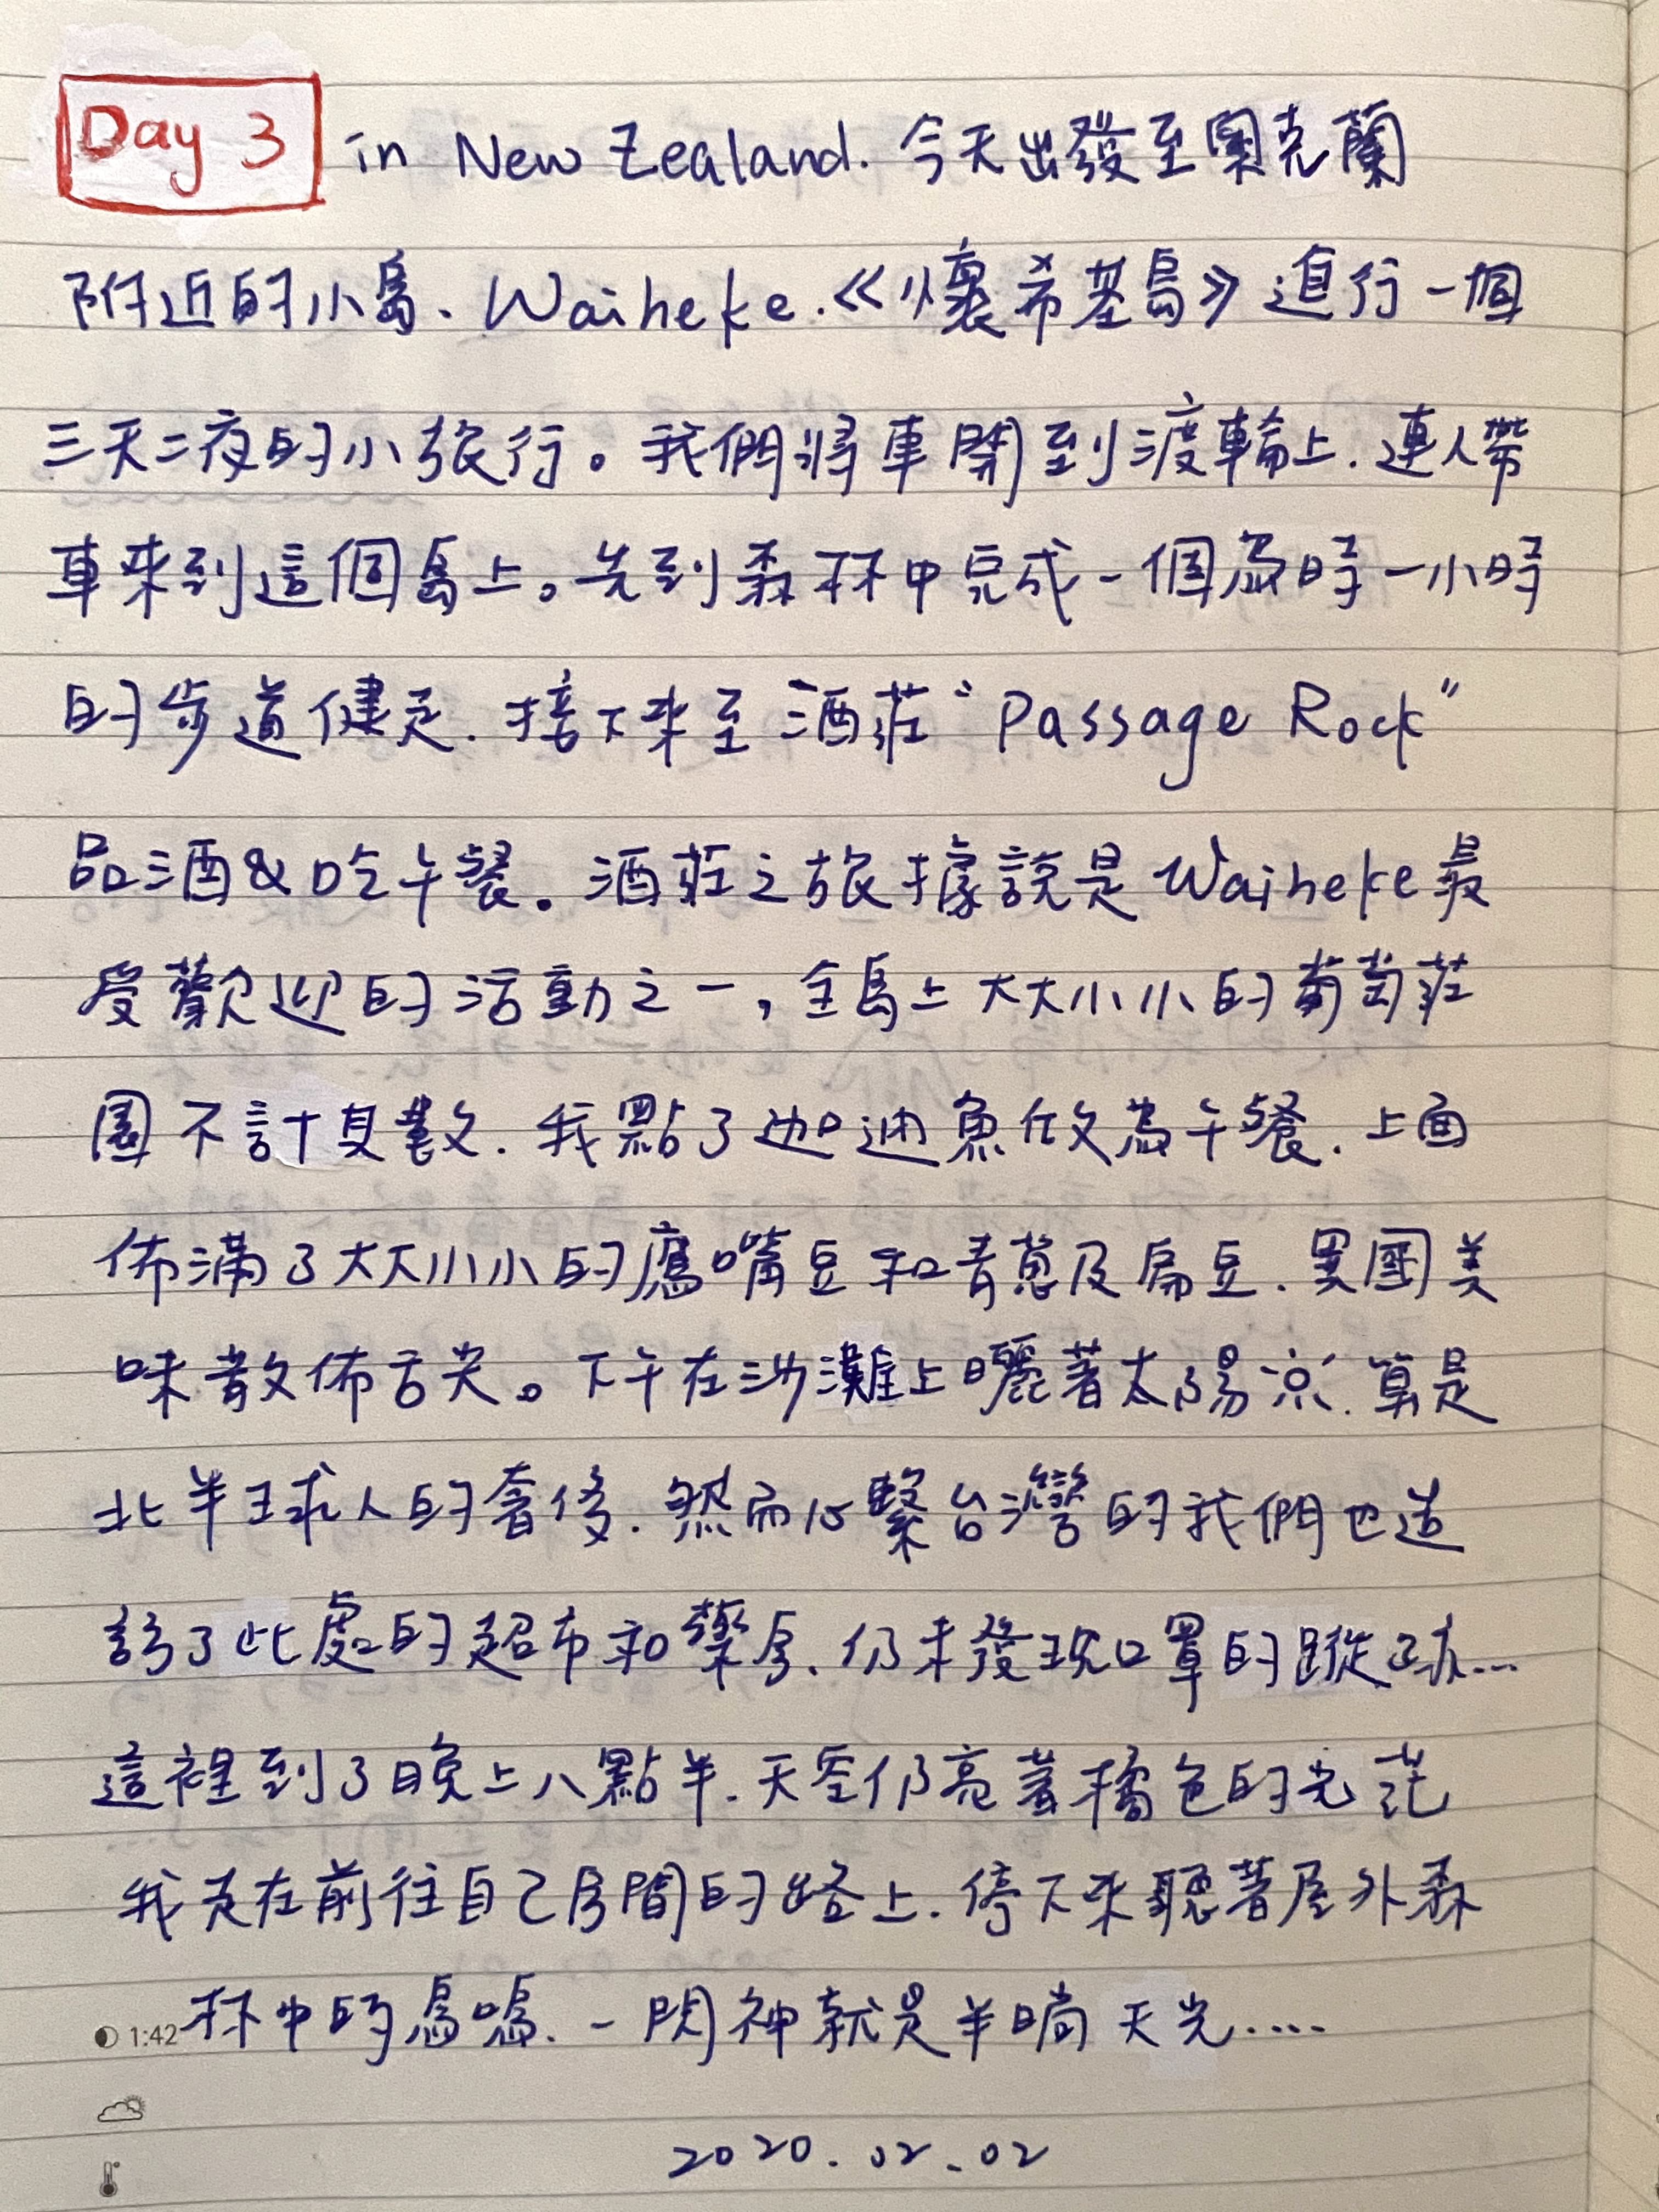 Day 3 in New Zealand. 今天出發至奧克蘭
附近的小島、Waiheke.《懷希基島》進行一個
三天二夜的小旅行。我們將車開到渡輪上.連人帶
車來到這個島上。先到森林中完成一個為時一小時
的步道健走.接下來至酒莊“Passage Rock”
品酒&吃午餐。酒莊之旅據說是Waiheke最
受歡迎的活動之一,全島上大大小小的葡萄莊
園不計其數.我點了 迪魚做為午餐.上面
佈滿了大大小小的鷹嘴豆和青蔥及扁豆.異國美
味散佈舌尖。下午在沙灘上曬著太陽 .算是
北半球人的奢侈.然而心繫台灣的我們也造
訪了此處的超市和藥房.仍未發現口罩的蹤跡...
這裡到了晚上八點半.天空仍亮著橘色的光芒
我走在前往自己房間的路上.停下來聽著屋外森
林中的鳥鳴.一閃神就是半晌天光....
1:42
2020.02.02